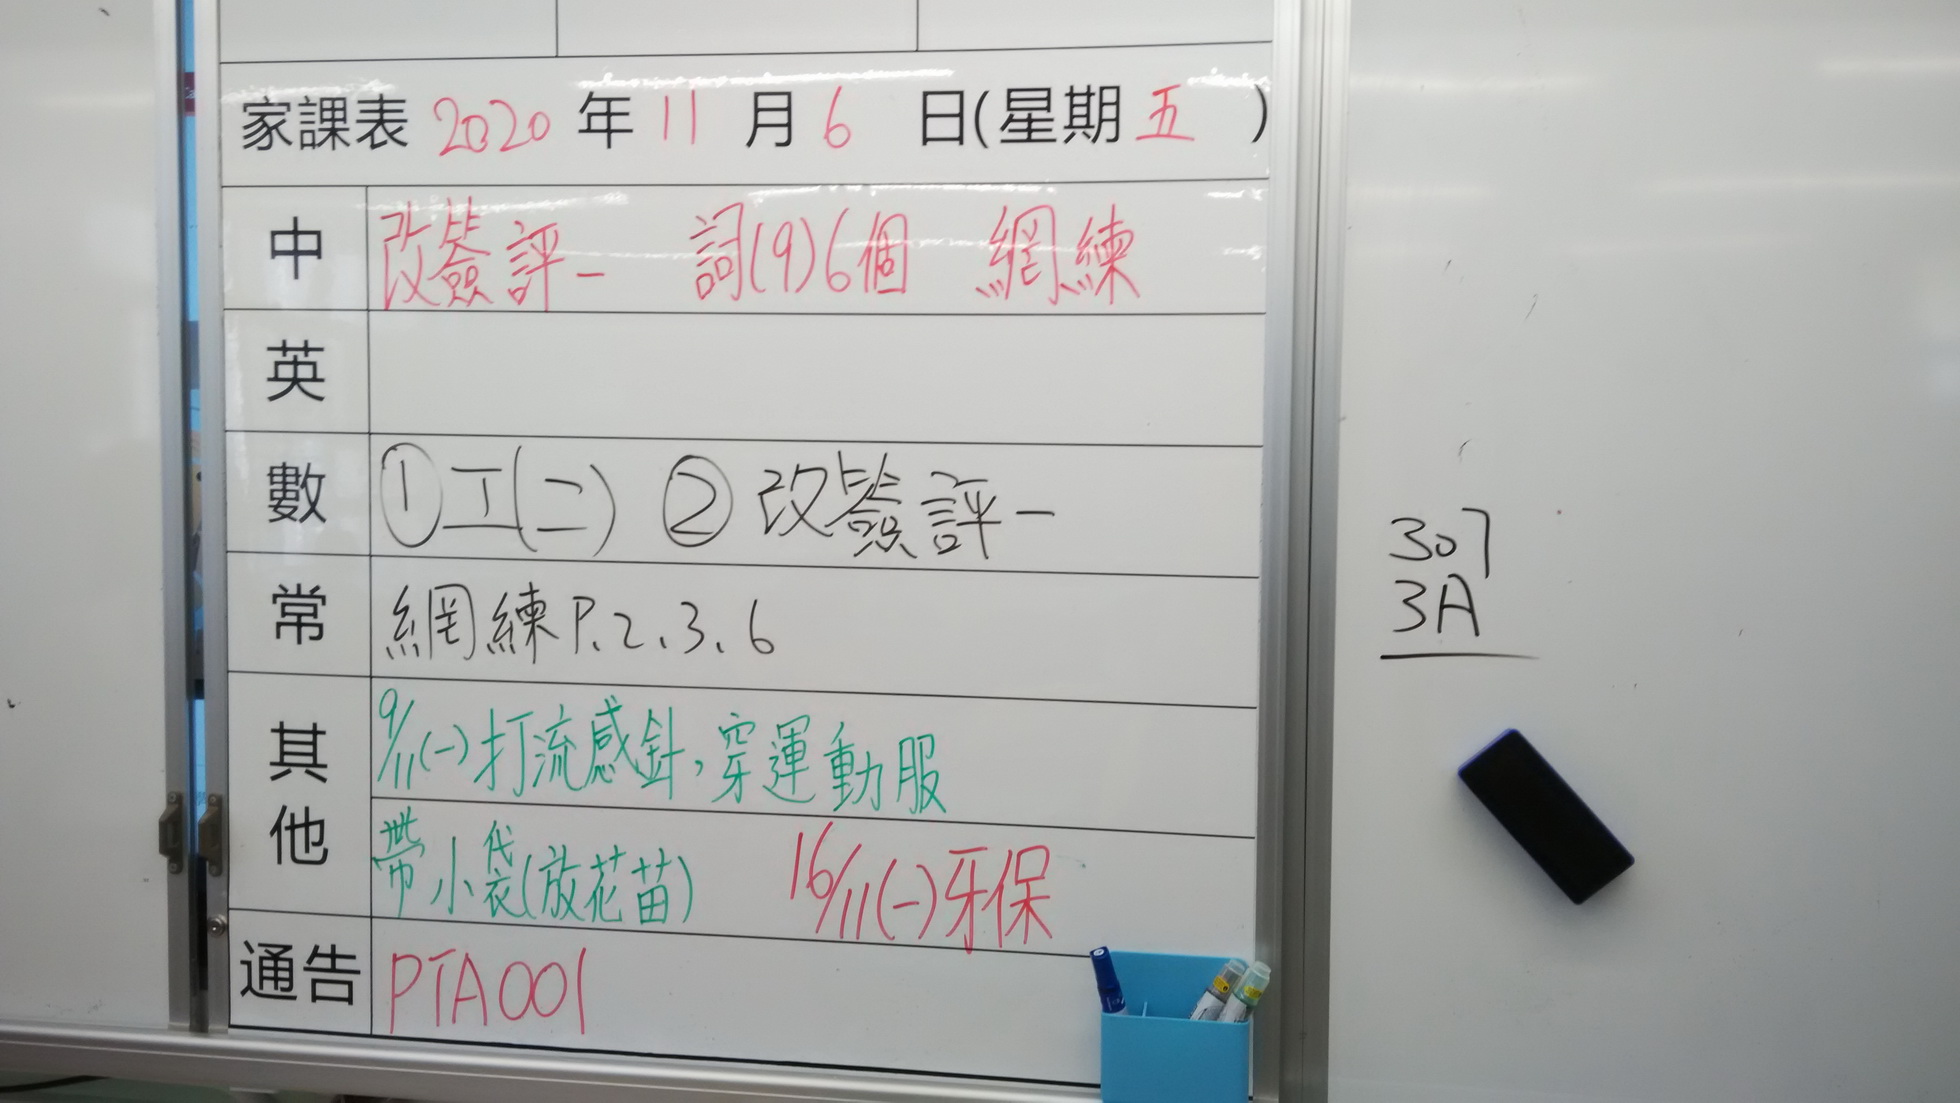 家課表 2020 年 11 月 6 日(星期五)
中 改簽評一 詞(9)6個 網練
英
數 ①工(二) ②改簽評一
常 網練P.2、3、6
其他 9/11(一)打流感針,穿運動服
帶小袋(放花苗) 16/11(一)牙保
通告 PTA001
307
3A